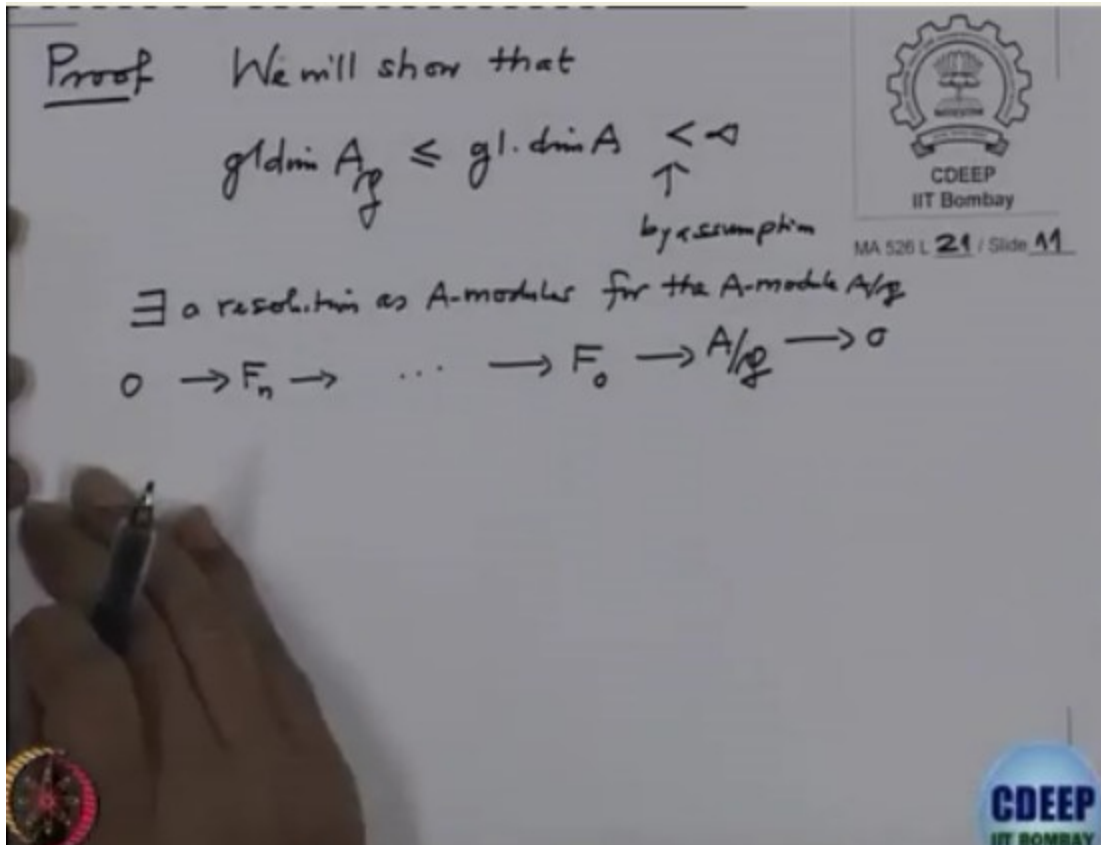 Proof We will show that
gldim A_𝔭 ≤ gl.dim A < ∞
↑
by assumption
CDEEP
IIT Bombay
MA 526 L 21 / Slide 11
∃ a resolution as A-modules for the A-module A/𝔭
0 → Fₙ → ... → F₀ → A/𝔭 → 0
CDEEP
IIT BOMBAY